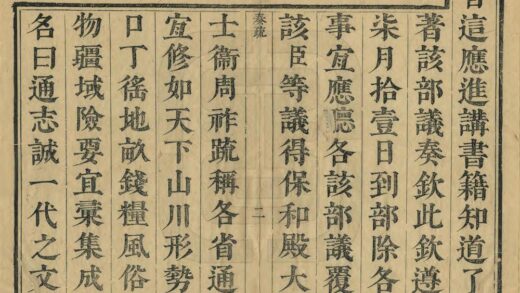 這應進講書籍知道了
著該部議奏欽此欽遵
柒月拾壹日到部除各
事宜應聽各該部議覆
該臣等議得保和殿大
奏疏
二
士衞周祚疏稱各省通
宜修如天下山川形勢
口丁徭地畝錢糧風俗
物疆域險要宜彚集成
名曰通志誠一代之文